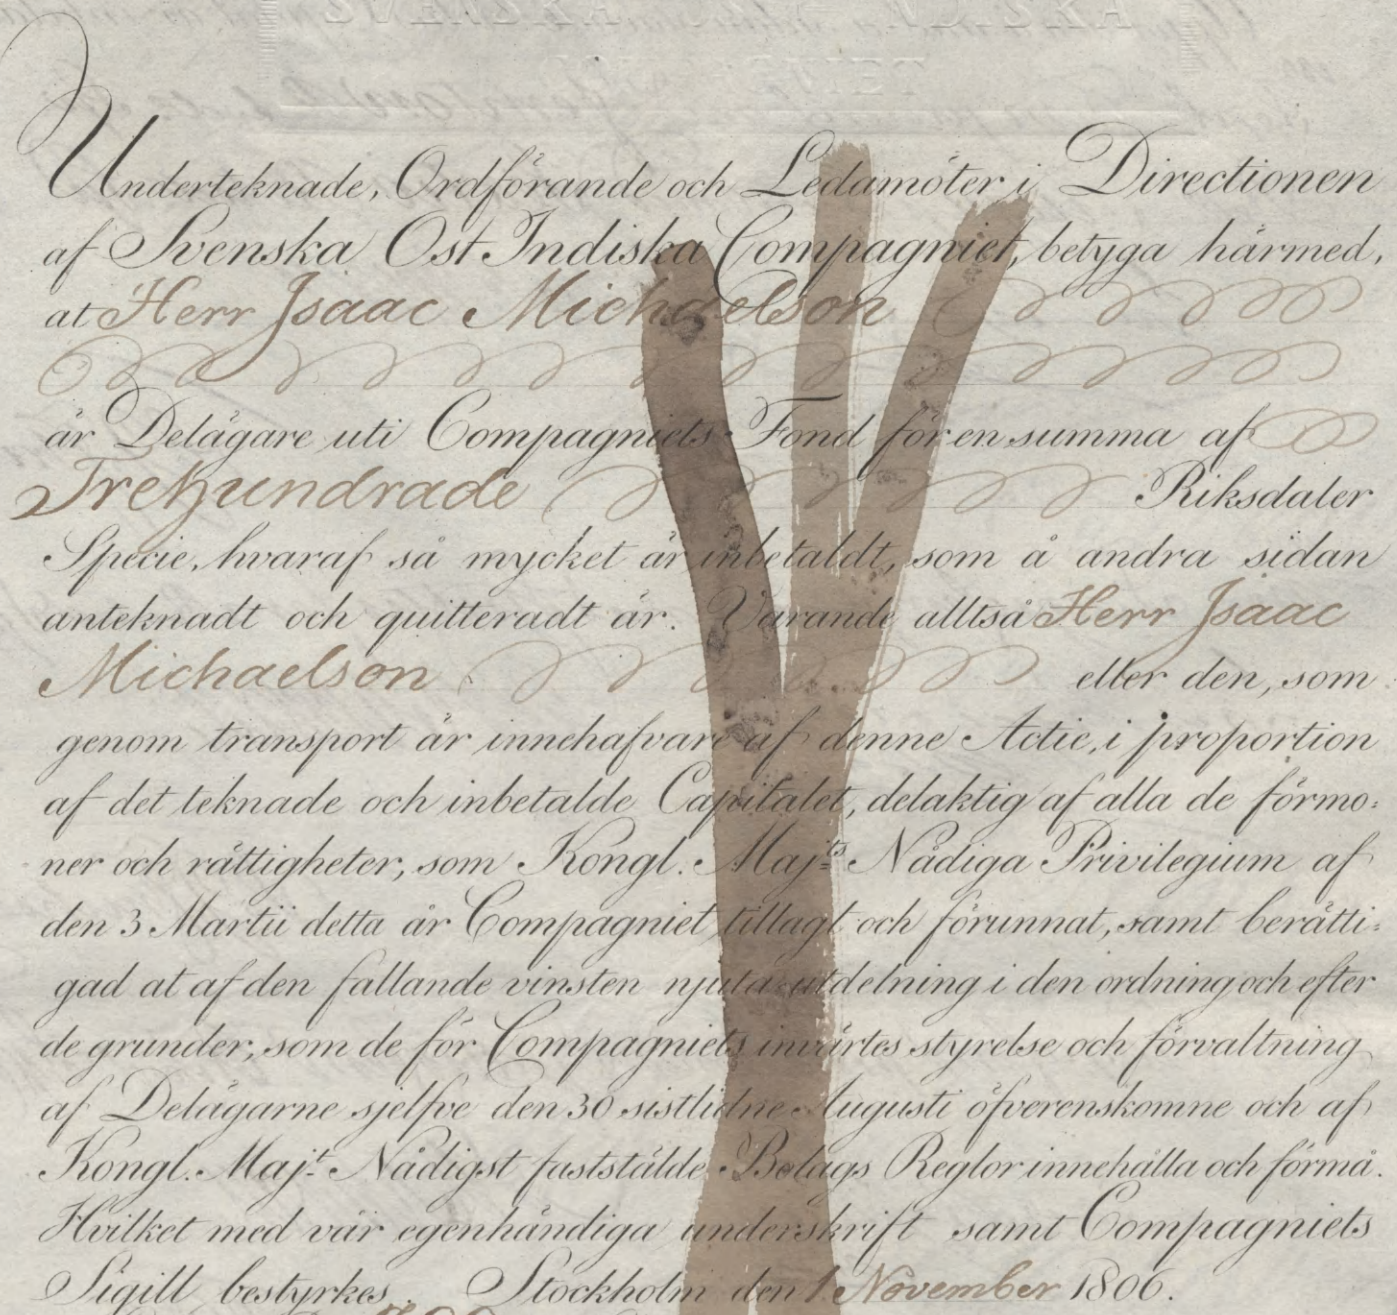 Underteknade, Ordförande och Ledamöter i Directionen
af Svenska Ost Indiska Compagniet, betyga härmed,
at Herr Isaac Michaelson
är Delägare uti Compagniets Fond för en summa af
Trehundrade Riksdaler
Specie, hvaraf så mycket är inbetaldt, som å andra sidan
anteknadt och quitteradt är. Varande alltså Herr Isaac
Michaelson eller den, som
genom transport är innehafvare af denne Actie, i proportion
af det teknade och inbetalde Capitalet, delaktig af alla de förmo-
ner och rättigheter, som Kongl. Maj:ts Nådiga Privilegium af
den 3 Martii detta år Compagniet tillagt och förunnat, samt berätti-
gad at af den fallande vinsten njuta utdelning i den ordning och efter
de grunder, som de för Compagniets invärtes styrelse och förvaltning
af Delägarne sjelfve den 30 sistlidne Augusti öfverenskomne och af
Kongl. Maj:t Nådigst fastställde Bolags Reglor innehålla och förmå.
Hvilket med vår egenhändiga underskrift samt Compagniets
Sigill bestyrkes. Stockholm den 1 November 1806.